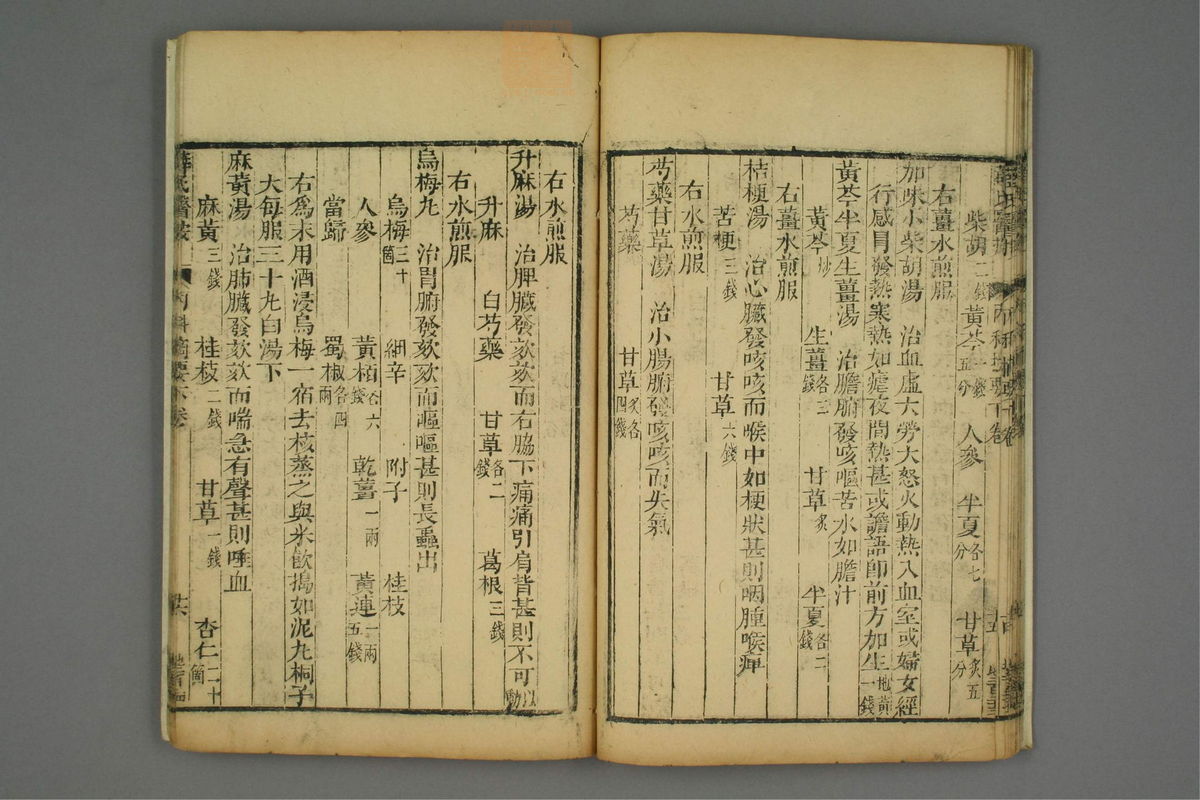 柴胡二錢 黃芩一錢五分 人參 半夏各七分 甘草炙五分
右薑水煎服
加味小柴胡湯 治血虛大勞大怒火動熱入血室或婦女經
行感冒發熱寒熱如瘧夜間熱甚或譫語卽前方加生地黃一錢
黃芩半夏生薑湯 治膽腑發咳嘔苦水如膽汁
黃芩炒 生薑各三 甘草炙 半夏各二錢
右薑水煎服
桔梗湯 治心臟發咳咳而喉中如梗狀甚則咽腫喉痺
苦梗三錢 甘草六錢
右水煎服
芍藥甘草湯 治小腸腑發咳咳而失氣
芍藥 甘草炙各四錢
右水煎服
升麻湯 治脾臟發欬欬而右脇下痛痛引肩背甚則不可以動
升麻 白芍藥 甘草各二錢 葛根三錢
右水煎服
烏梅丸 治胃腑發欬欬而嘔嘔甚則長蟲出
烏梅三十箇 細辛 附子 桂枝
人參 黃栢各六錢 乾薑一兩 黃連一兩五錢
當歸 蜀椒各四兩
右爲末用酒浸烏梅一宿去核蒸之與米飲搗如泥丸桐子
大每服三十丸白湯下
麻黃湯 治肺臟發欬欬而喘急有聲甚則唾血
麻黃三錢 桂枝二錢 甘草一錢 杏仁二十箇
薛氏醫按 內科摘要下卷 共